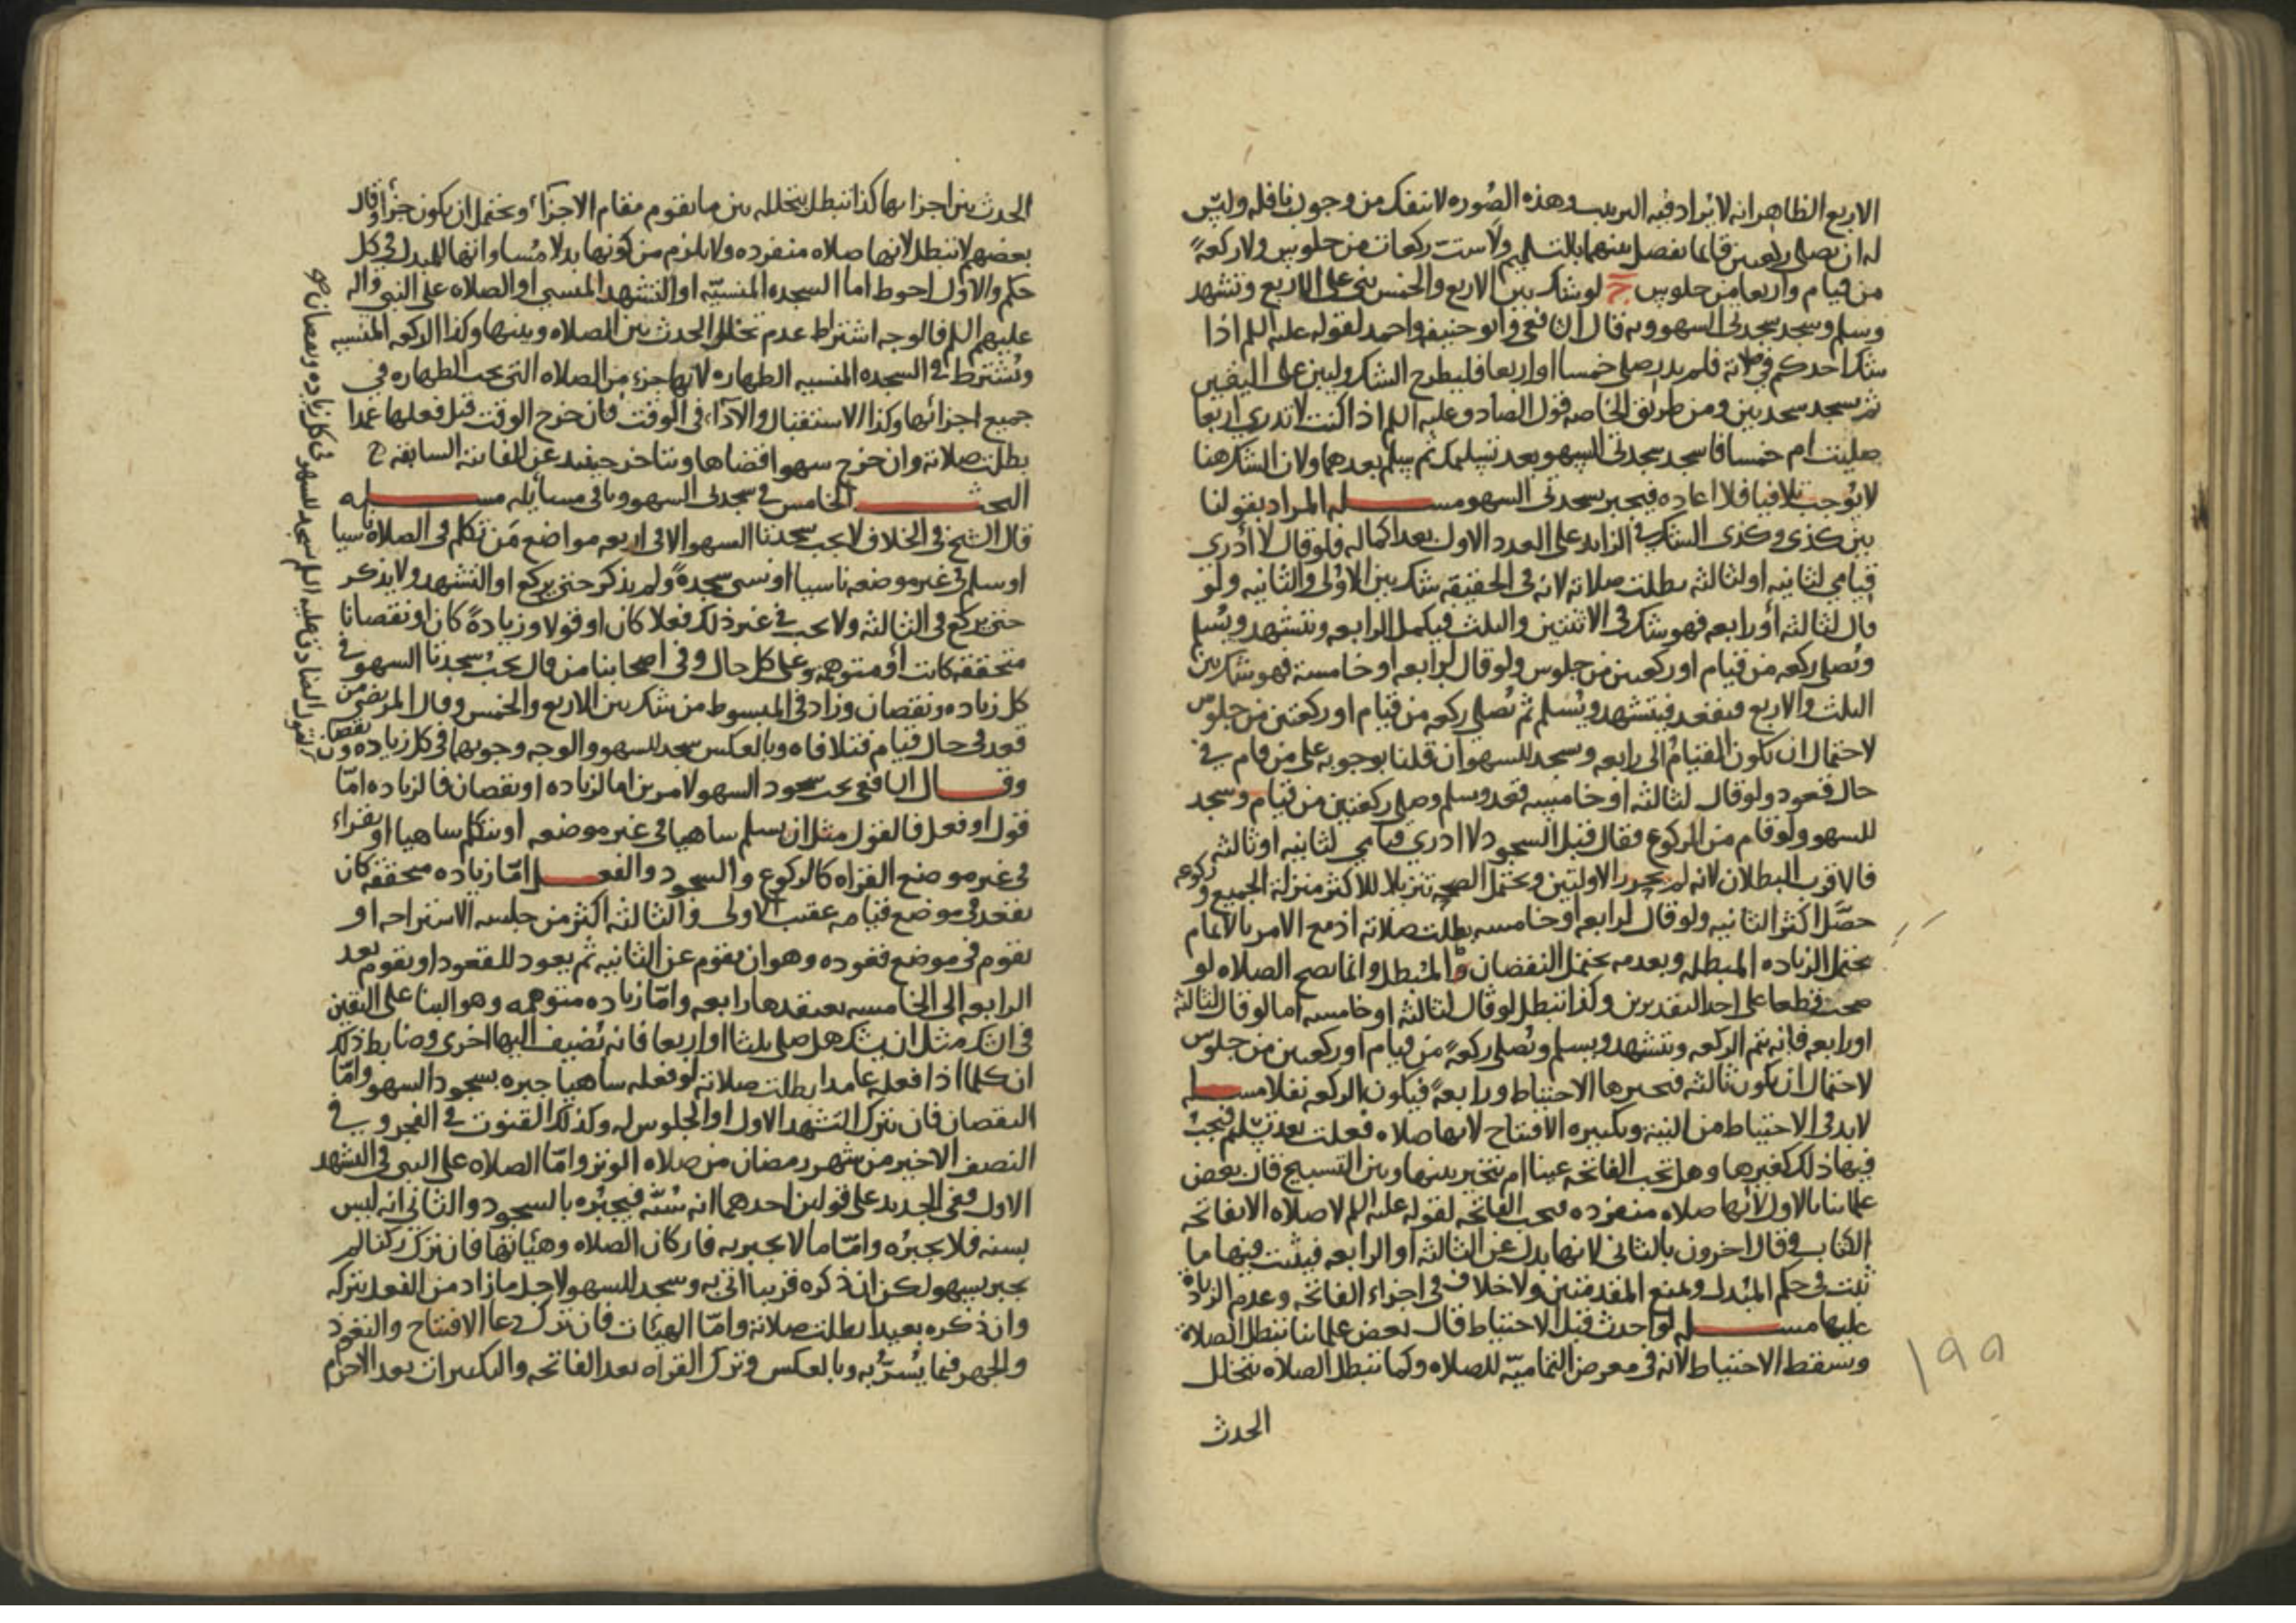 الاربع الظاهر انه لا يراد فيه الترتيب وهذه الصوره لا تنفك من وجوب نافله وليس
له ان يصلي ركعتين قائما يفصل بينهما بالتسليم ولا ست ركعات من جلوس ولا ركعة
من قيام واربعا من جلوس ج لو شك بين الاربع والخمس بنى على الاربع وتشهد
وسلم وسجد سجدتي السهو وبه قال الشافعي وابو حنيفه واحمد لقوله عليه السلم اذا
شك احدكم في صلاته فلم يدر صلى خمسا او اربعا فليطرح الشك وليبن على اليقين
ثم يسجد سجدتين ومن طريق الخاصه قول الصادق عليه السلم اذا كنت لا تدري اربعا
صليت ام خمسا فاسجد سجدتي السهو بعد تسليمك ثم سلم بعدهما ولان الشك هنا
لا يوجب تلافيا فلا اعاده فيجبر بسجدتي السهو مسله المراد بقولنا
بين كذى وكذى الشك في الزايد على العدد الاول بعد اكماله فلو قال لا أدري
قيامي لثانيه او لثالثه بطلت صلاته لانه في الحقيقه شك بين الاولى والثانيه ولو
قال لثالثه أو رابعه فهو شك في الاثنتين والثلث فيكمل الرابعه ويتشهد ويسلم
ويصلي ركعه من قيام او ركعتين من جلوس ولو قال لرابعه او خامسة فهو شك بين
الثلث والاربع فيقعد فيتشهد ويسلم ثم يصلي ركعه من قيام او ركعتين من جلوس
لاحتمال ان يكون القيام الى رابعه وسجد للسهو ان قلنا بوجوبه على من قام في
حال قعود ولو قال لثالثه او خامسه قعد وسلم وصلى ركعتين من قيام وسجد
للسهو ولو قام من الركوع فقال قبل السجود لا ادري قيامي لثانيه او ثالثه
فالاقرب البطلان لانه لم يحرز الاوليين ويحتمل الصحه تنزيلا للاكثر منزلة الجميع وركوعه
حصّل اكثر الثانيه ولو قال لرابعه او خامسه بطلت صلاته اذ مع الامر بالاتمام
يحتمل الزياده المبطله وبعدمه يحتمل النقصان المبطل وانما يصح الصلاه لو
صحت قطعا على احد التقديرين وكذا تبطل لو قال لثالثه او خامسه اما لو قال لثالثه
او رابعه فانه يتم الركعه ويتشهد ويسلم ويصلي ركعة من قيام او ركعتين من جلوس
لاحتمال ان يكون ثالثه فيجبرها الاحتياط ورابعة فيكون الركعه نفلا مسله
لا بد في الاحتياط من النيه وتكبيره الافتتاح لانها صلاه فعلت بعد تسليم فيجب
فيها ذلك كغيرها وهل تجب الفاتحه عينا ام يتخير بينها وبين التسبيح قال بعض
علمائنا بالاول لانها صلاه منفرده فيجب الفاتحه لقوله عليه السلم لا صلاه الا بفاتحه
الكتاب وقال اخرون بالثاني لانها بدل عن الثالثه او الرابعه فيثبت فيها ما
ثبت في حكم المبدل ويمنع المقدمتين ولا خلاف في اجزاء الفاتحه وعدم الزيادة
عليها مسله لو احدث قبل الاحتياط قال بعض علمائنا تبطل الصلاة
ويسقط الاحتياط لانه في معرض التماميّه للصلاه وكما تبطل الصلاه بتخلل
الحدث
١٩٥
الحدث بين اجزائها كذا تبطل بتخلله بين ما يقوم مقام الاجزآء ويحتمل ان يكون جزأ وقال
بعضهم لا تبطل لانها صلاه منفرده ولا يلزم من كونها بدلا مساواتها للمبدل في كل
حكم والاول احوط اما السجده المنسيّه او التشهد المنسي او الصلاه على النبي واله
عليهم السلم فالوجه اشتراط عدم تخلل الحدث بين الصلاه وبينها وكذا الركعه المنسيه
ويشترط في السجده المنسيه الطهاره لانها جزء من الصلاه التي يجب الطهاره في
جميع اجزائها وكذا الاستقبال والاداء في الوقت فان خرج الوقت قبل فعلها عمدا
بطلت صلاته وان خرج سهوا قضاها ويتاخر حينئذ عن الفائته السابقه ح
البحث الخامس في سجدتي السهو وباقي مسايله مسله
قال الشيخ في الخلاف لا يجب سجدتا السهو الا في اربعه مواضع من تكلم في الصلاة ناسيا
او سلم في غير موضعه ناسيا او نسي سجدة ولم يذكر حتى يركع او التشهد ولا يذكر
حتى يركع في الثالثه ولا يجب في غير ذلك فعلا كان او قولا وزيادة كان او نقصانا
متحققه كانت أو متوهمه وعلى كل حال وفي اصحابنا من قال يجب سجدتا السهو في
كل زياده ونقصان وزاد في المبسوط من شك بين الاربع والخمس وقال المرتضى من
قعد في حال قيام فتلافاه وبالعكس سجد للسهو والوجه وجوبها في كل زياده ونقصان
وقال الشافعي يجب سجود السهو لامرين اما لزياده او نقصان فالزياده امّا
قول او فعل فالقول مثل ان يسلم ساهيا في غير موضعه او يتكلم ساهيا او يقراء
في غير موضع القراه كالركوع والسجود والفعل امّا زياده متحققه كان
يقعد في موضع قيامه عقيب الاولى والثالثه اكثر من جلسه الاستراحه او
يقوم في موضع قعوده وهو ان يقوم عن الثانيه ثم يعود للقعود او يقوم بعد
الرابعه الى الخامسه يعتقدها رابعه وامّا زياده متوهمه وهو البنا على اليقين
في الشك مثل ان يشك هل صلى ثلثا او اربعا فانه يضيف اليها اخرى وضابط ذلك
ان كلما اذا فعله عامدا بطلت صلاته لو فعله ساهيا جبره بسجود السهو وامّا
النقصان فان يترك التشهد الاول او الجلوس له وكذلك القنوت في الفجر وفي
النصف الاخير من شهر رمضان من صلاه الوتر وامّا الصلاه على النبي في التشهد
الاول ففي الجديد على قولين احدهما انه سنّه فيجبره بالسجود والثاني انه ليس
بسنه فلا يجبره وامّا ما لا يجبر به فاركان الصلاه وهيأتها فان ترك ركنا لم
يجبر بسهو لكن ان ذكره قريبا اتى به وسجد للسهو لاجل ما زاد من الفعل بتركه
وان ذكره بعيدا بطلت صلاته وامّا الهيئات فان ترك دعا الافتتاح والتعوذ
والجهر فيما يُسَرّ به وبالعكس وترك القراه بعد الفاتحه والتكبيرات بعد الاحرام
لقول الصادق عليه السلم تسجد للسهو في كل زياده ونقصان صح